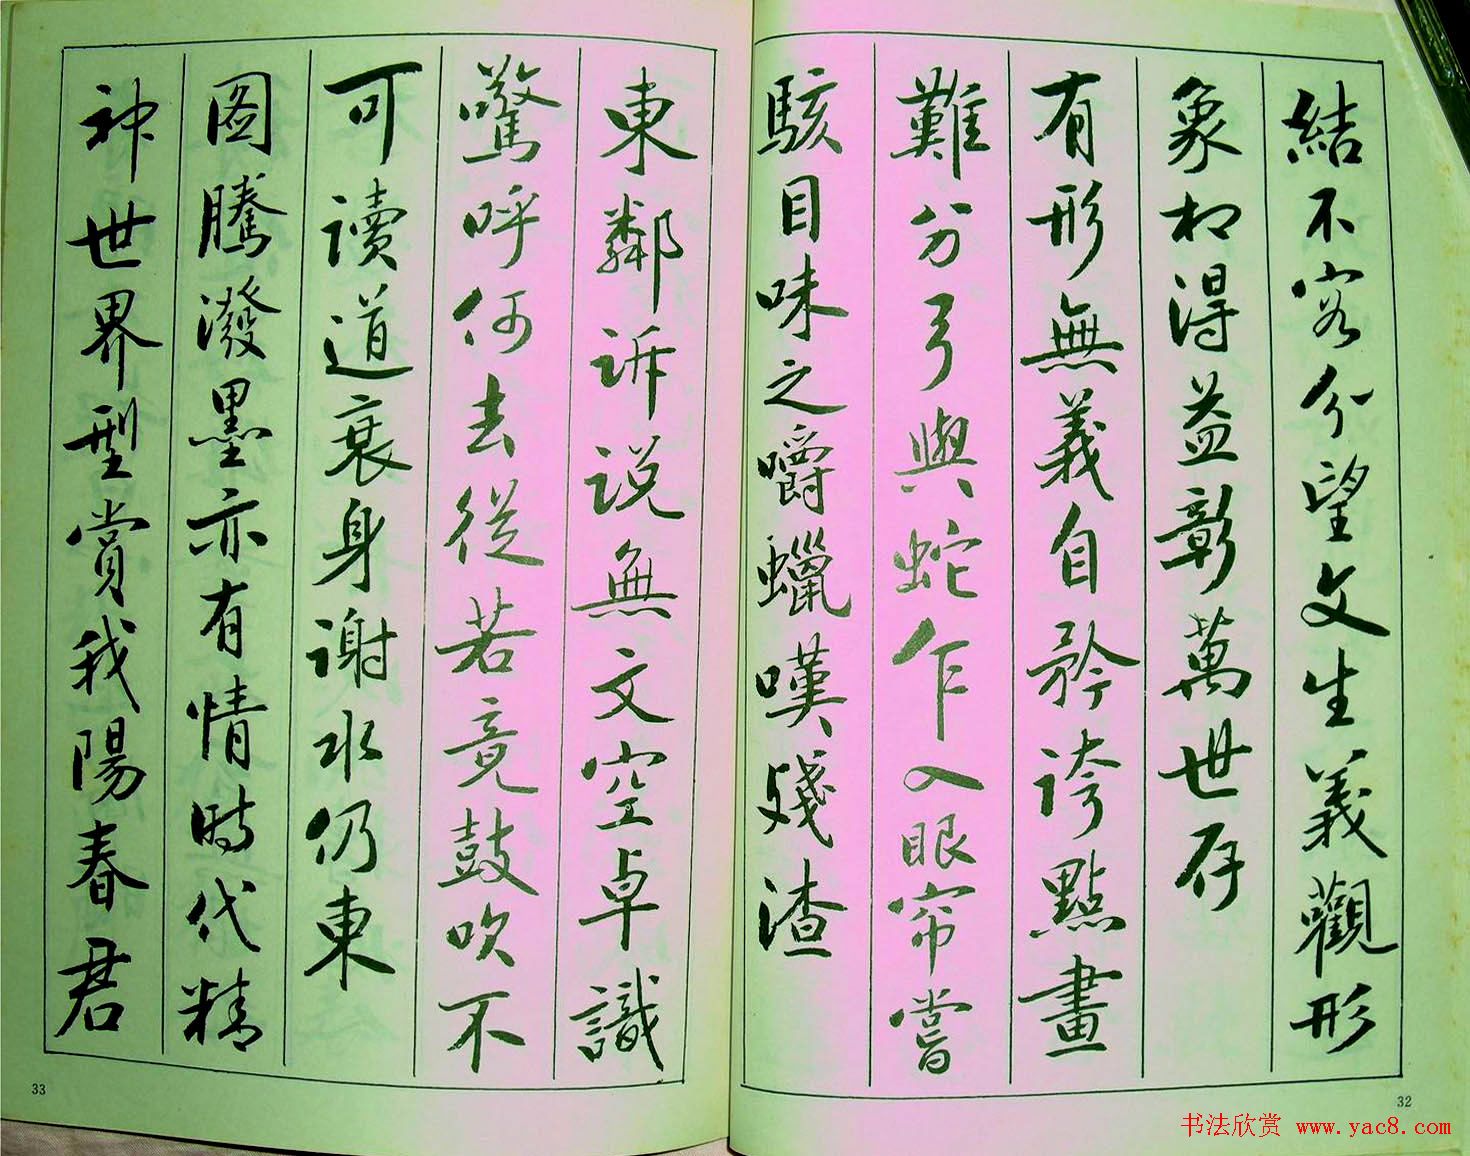 結不容分望文生義觀形
象相得益彰萬世存
有形無義自矜誇點畫
難分弓與蛇乍入眼帘嘗
駭目味之嚼蠟嘆殘渣
東鄰诉说無文空卓識
驚呼何去從若竟鼓吹不
可读道衰身谢水仍東
图騰潑墨亦有情時代精
神世界型賞我陽春君
33
32
书法欣赏 www.yac8.com